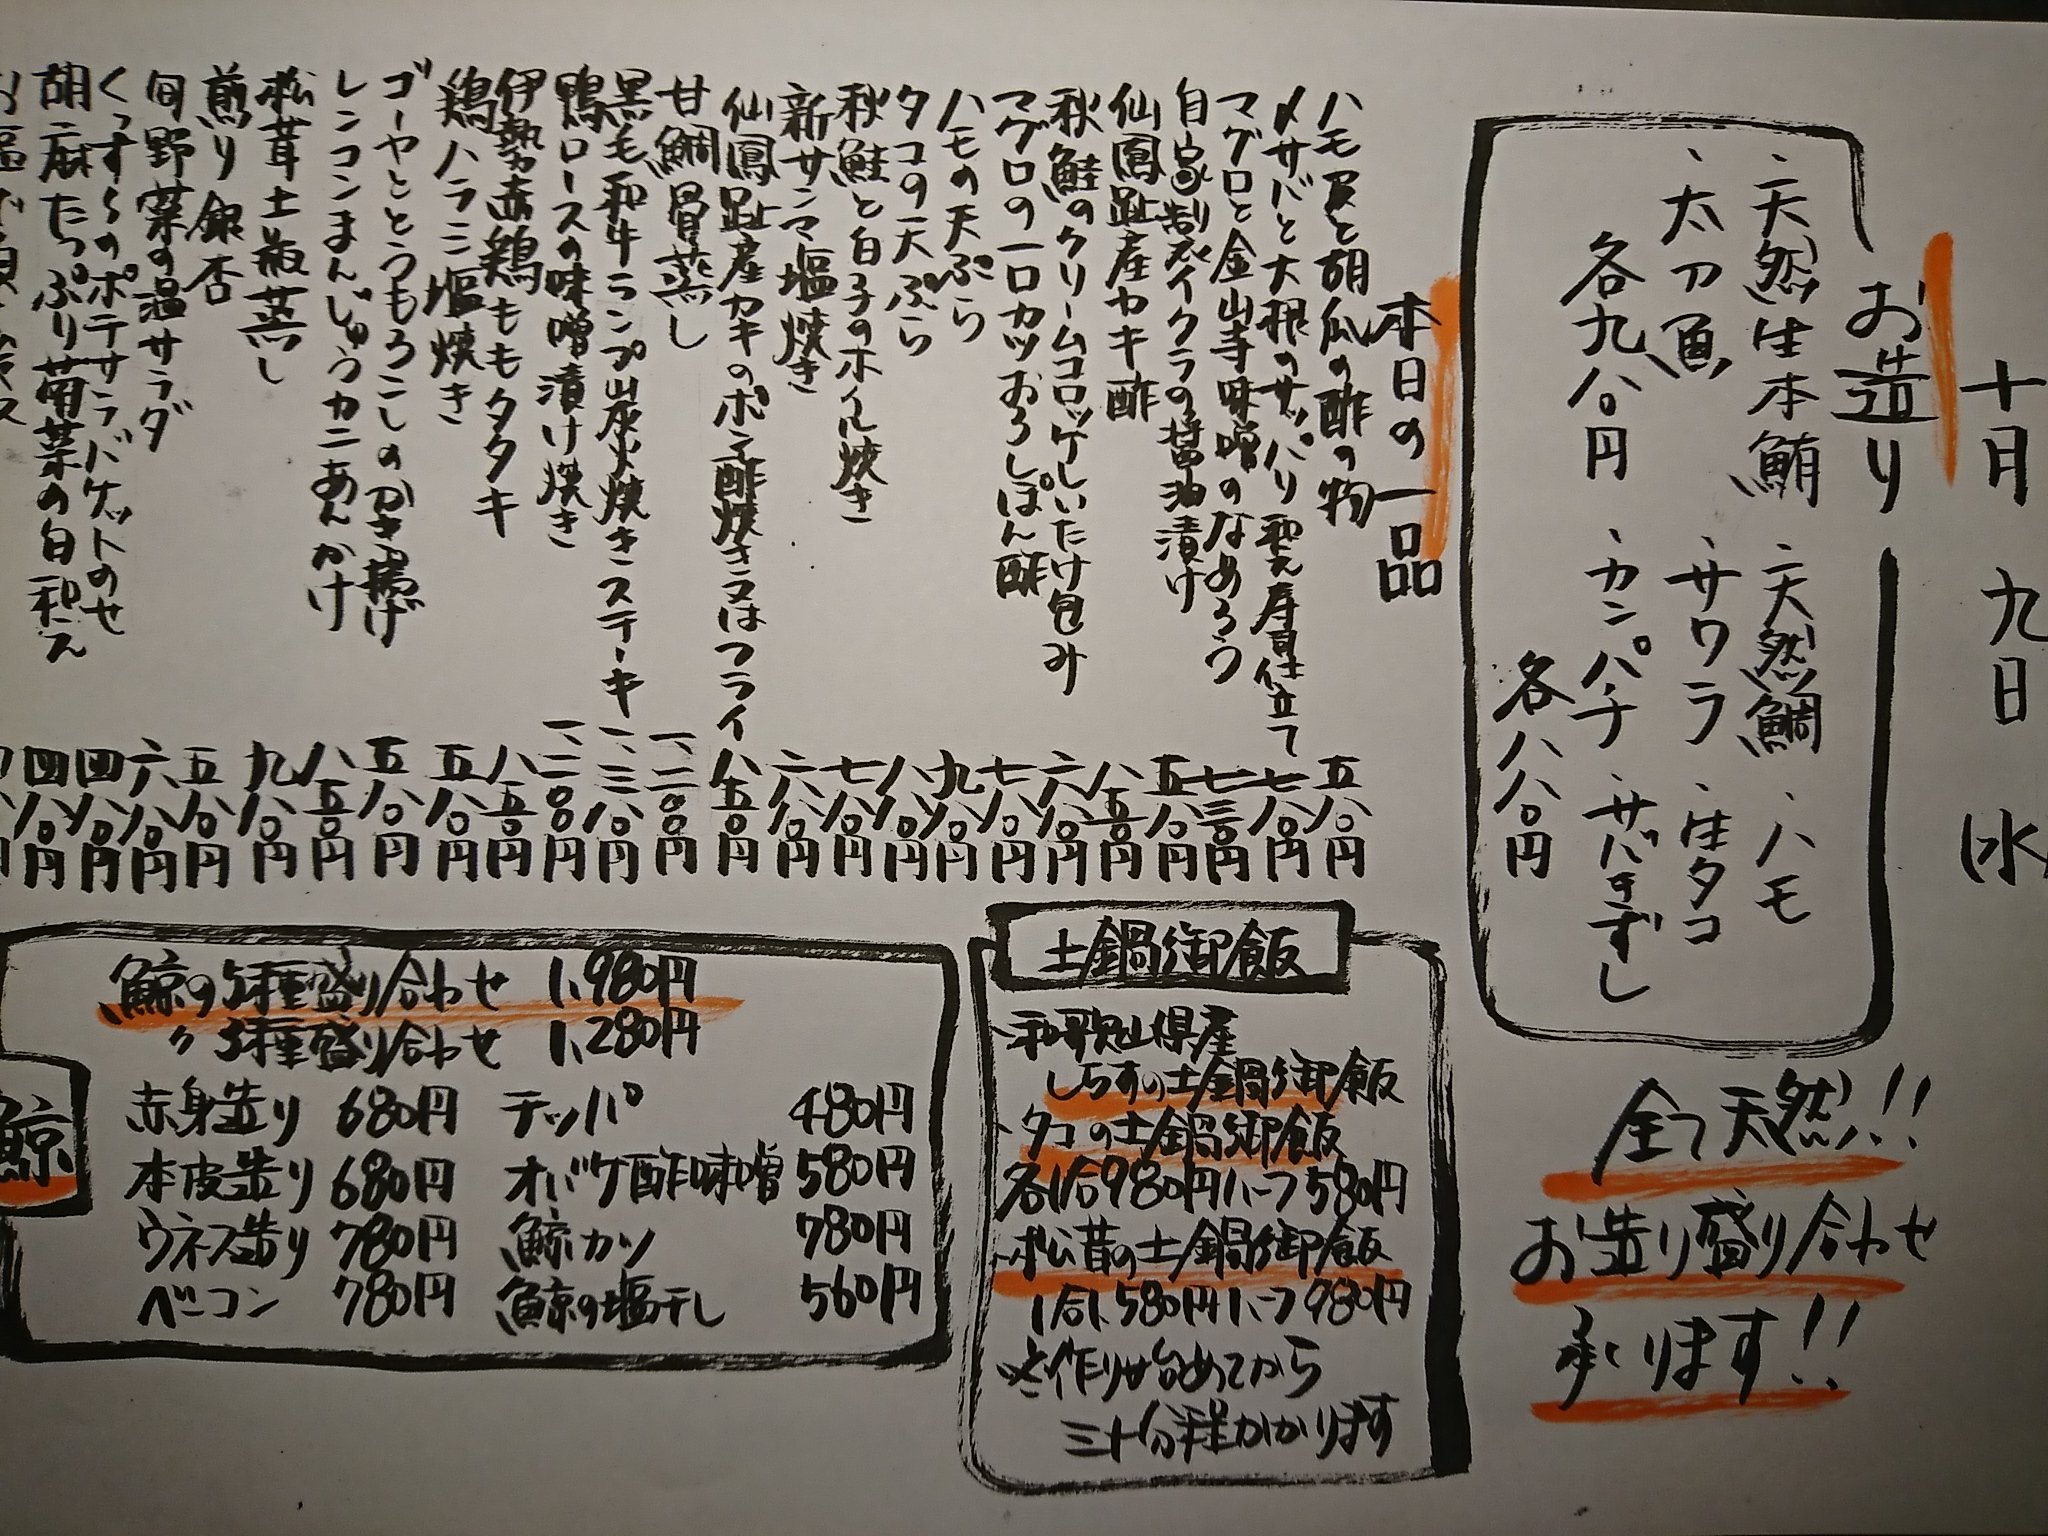 十月九日(水)
お造り
、天然生本鮪 、天然鯛 、ハモ
、太刀魚 、サワラ 、生タコ
各九八〇円 、カンパチ 、サバきずし
各八八〇円
全て天然!!
お造り盛り合わせ
承ります!!
本日の一品
ハモ皮と胡瓜の酢の物 五八〇円
〆サバと大根のサッパリ和え寿司仕立て 七八〇円
マグロと金山寺味噌のなめろう 七三〇円
自家製イクラの醤油漬け 五八〇円
仙鳳趾産カキ酢 八五〇円
秋鮭のクリームコロッケしいたけ包み 六八〇円
マグロの一口カツおろしぽん酢 七八〇円
ハモの天ぷら 九八〇円
タコの天ぷら 八八〇円
秋鮭と白子のホイル焼き 七八〇円
新サンマ塩焼き 六八〇円
仙鳳趾産カキのポン酢焼き又はフライ 八五〇円
甘鯛骨蒸し 一、二〇〇円
黒毛和牛ランプ炭火焼きステーキ 一、三八〇円
鴨ロースの味噌漬け焼き 一、二〇〇円
伊勢赤鶏ももタタキ 八五〇円
鶏ハラミ塩焼き 五八〇円
ゴーヤととうもろこしのかき揚げ 五八〇円
レンコンまんじゅうカニあんかけ 八五〇円
松茸土瓶蒸し 九八〇円
煎り銀杏 五八〇円
旬野菜の温サラダ 六八〇円
くっす〜のポテサラバケットのせ 四八〇円
胡麻たっぷり菊菜の白和え 四八〇円
土鍋御飯
、和歌山県産
しらすの土鍋御飯
、タコの土鍋御飯
各1合980円ハーフ580円
、松茸の土鍋御飯
1合1,580円ハーフ980円
※作り始めてから
三十分程かかります
鯨
鯨の5種盛り合わせ 1,980円
〃 3種盛り合わせ 1,280円
赤身造り 680円 テッパ 480円
本皮造り 680円 オバケ酢味噌 580円
ウネス造り 780円 鯨カツ 780円
ベーコン 780円 鯨の塩干し 560円